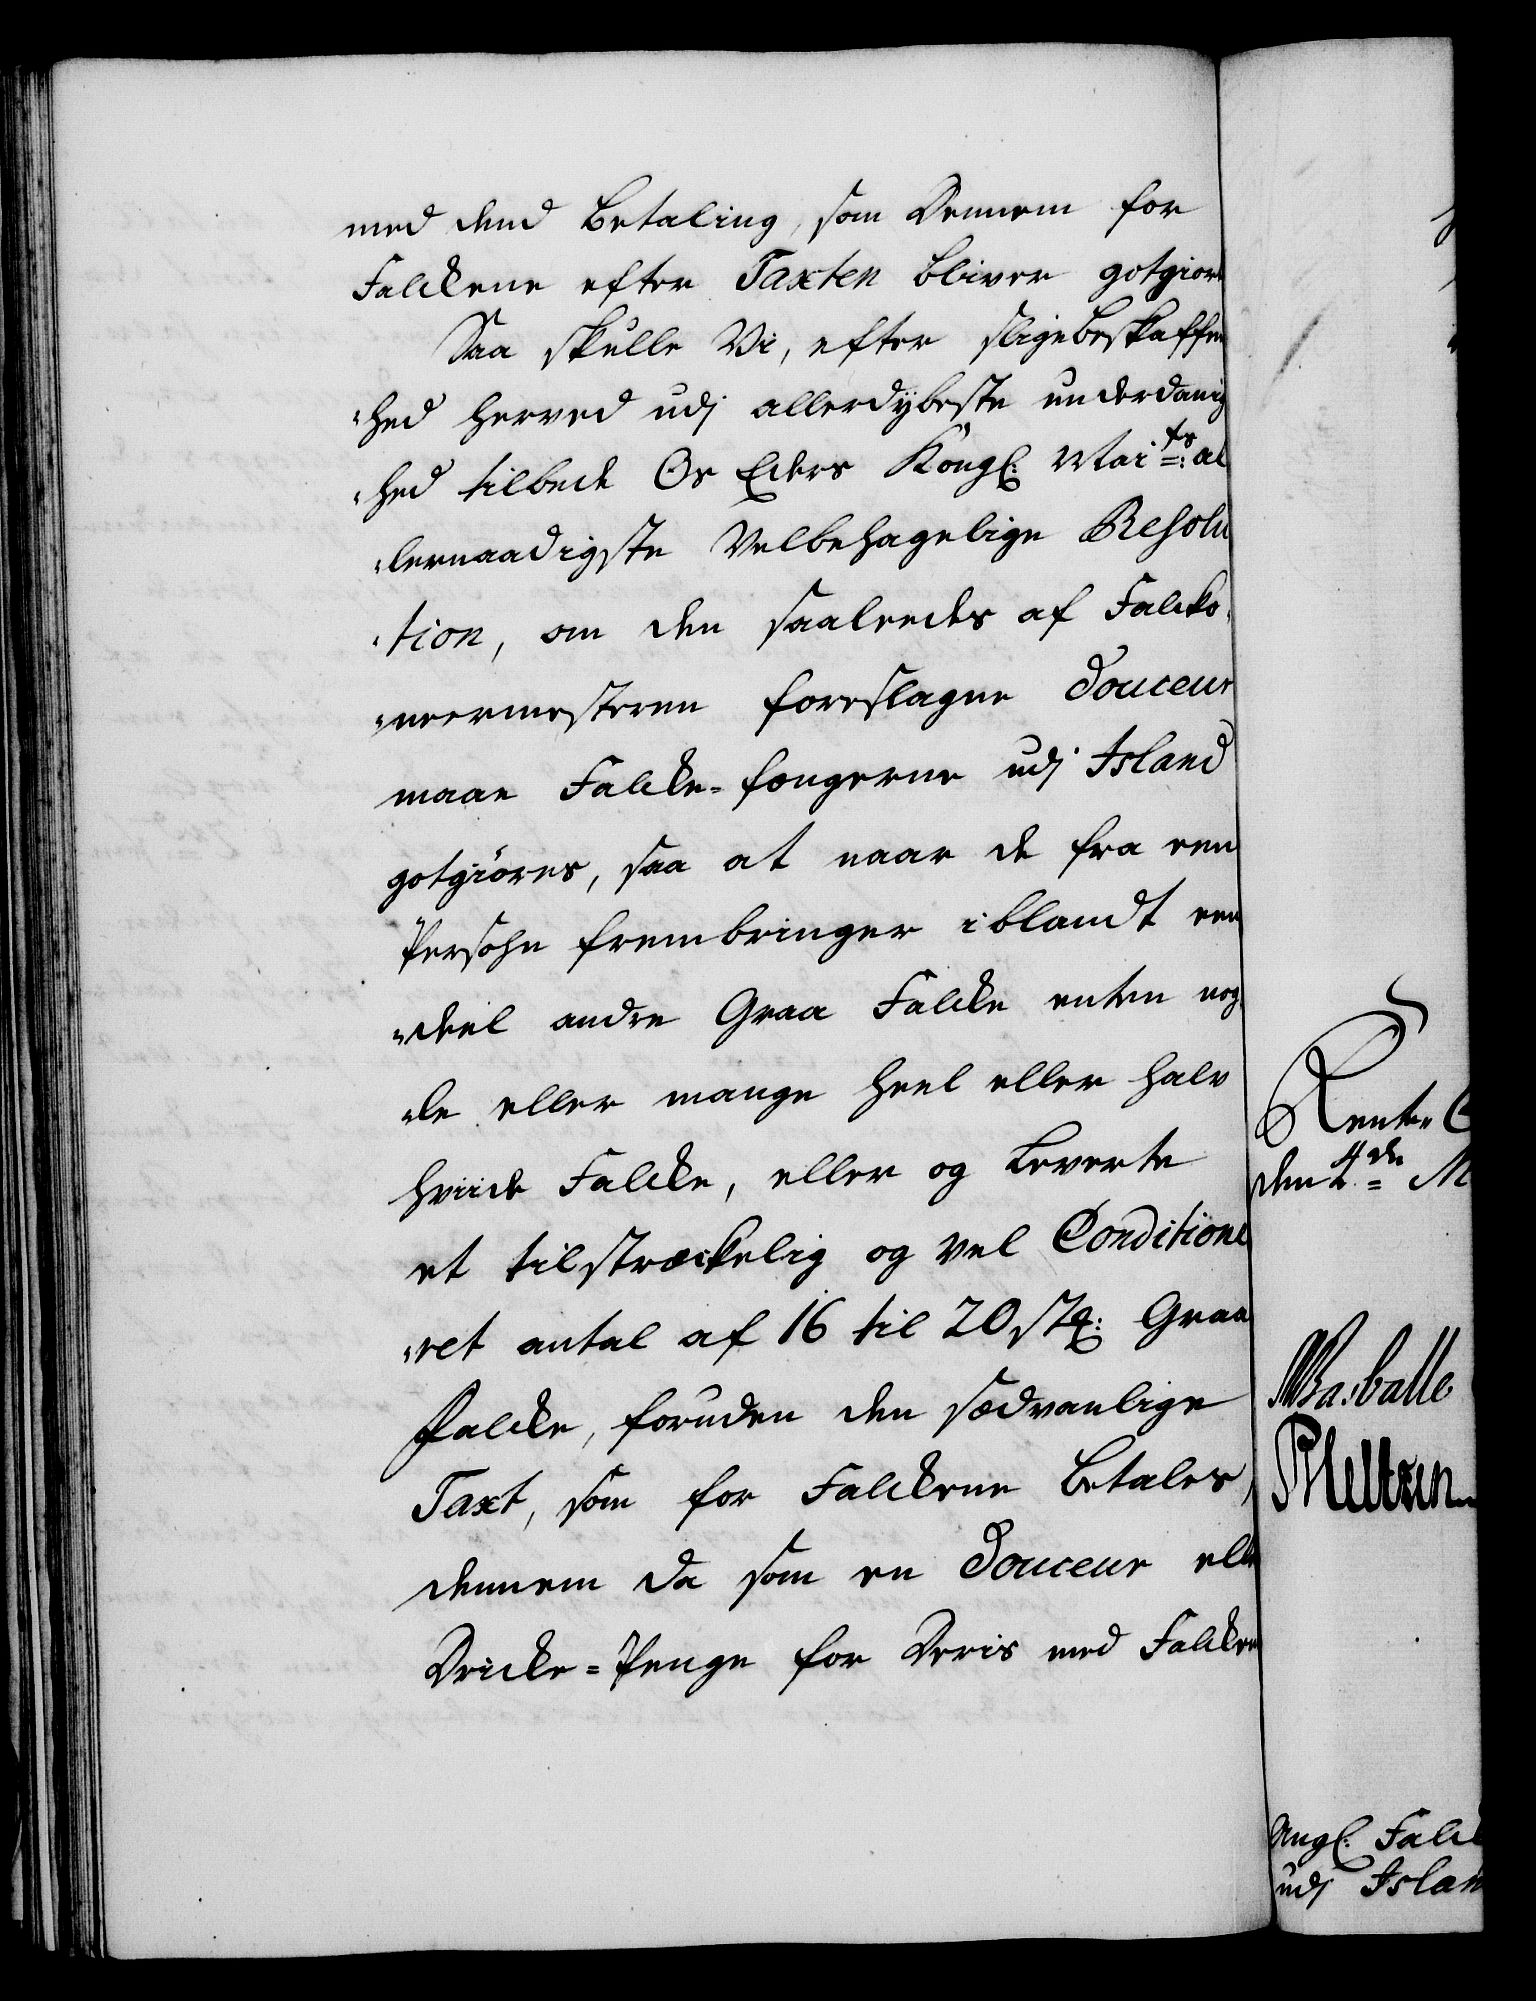 med dend Betaling, som Dennem for
Falckene efter Taxten bliver gotgiort
Saa skulle Vi, efter slige beskaffen
"hed herved udj allerdybeste underdanig
"hed tilbede Os Eders Kongl: Mai^ts: al
"lernaadigste Velbehagelige Resolu
"tion, om den saaleedes af Falcko,
"neermesteren foreslagne Douceur
maae Falcke-fangerne udj Island
gotgiöres, saa at naar de fra een
Persohn frembringer iblandt een
"deel andre Graa Falcke enten nog
"le eller mange heel eller halv
hviide Falcke, eller og Leverte
et tilstræckelig og vel Conditione
"ret antal af 16 til 20 st{k}: Graa
Falcke, foruden den sædvanlige
Taxt, som for Falckene betales,
dennem da som en Douceur elle
Dricke-Penge for Deris med Falcken
Rente C
den 4^de M
Meltzen
angl: Falck
udj Islan